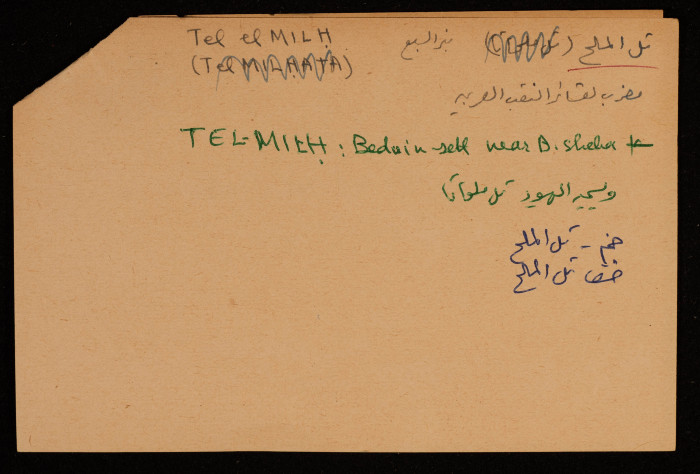 Tel el MILH بئر السبع تل الملح
(Tel MILAHTA)
مضرب لعشائر النقب العربية
TEL-MILH: Beduin-sett near B. sheba
ويسميه اليهود تل ملحاتا
تل الملح
تل الملح